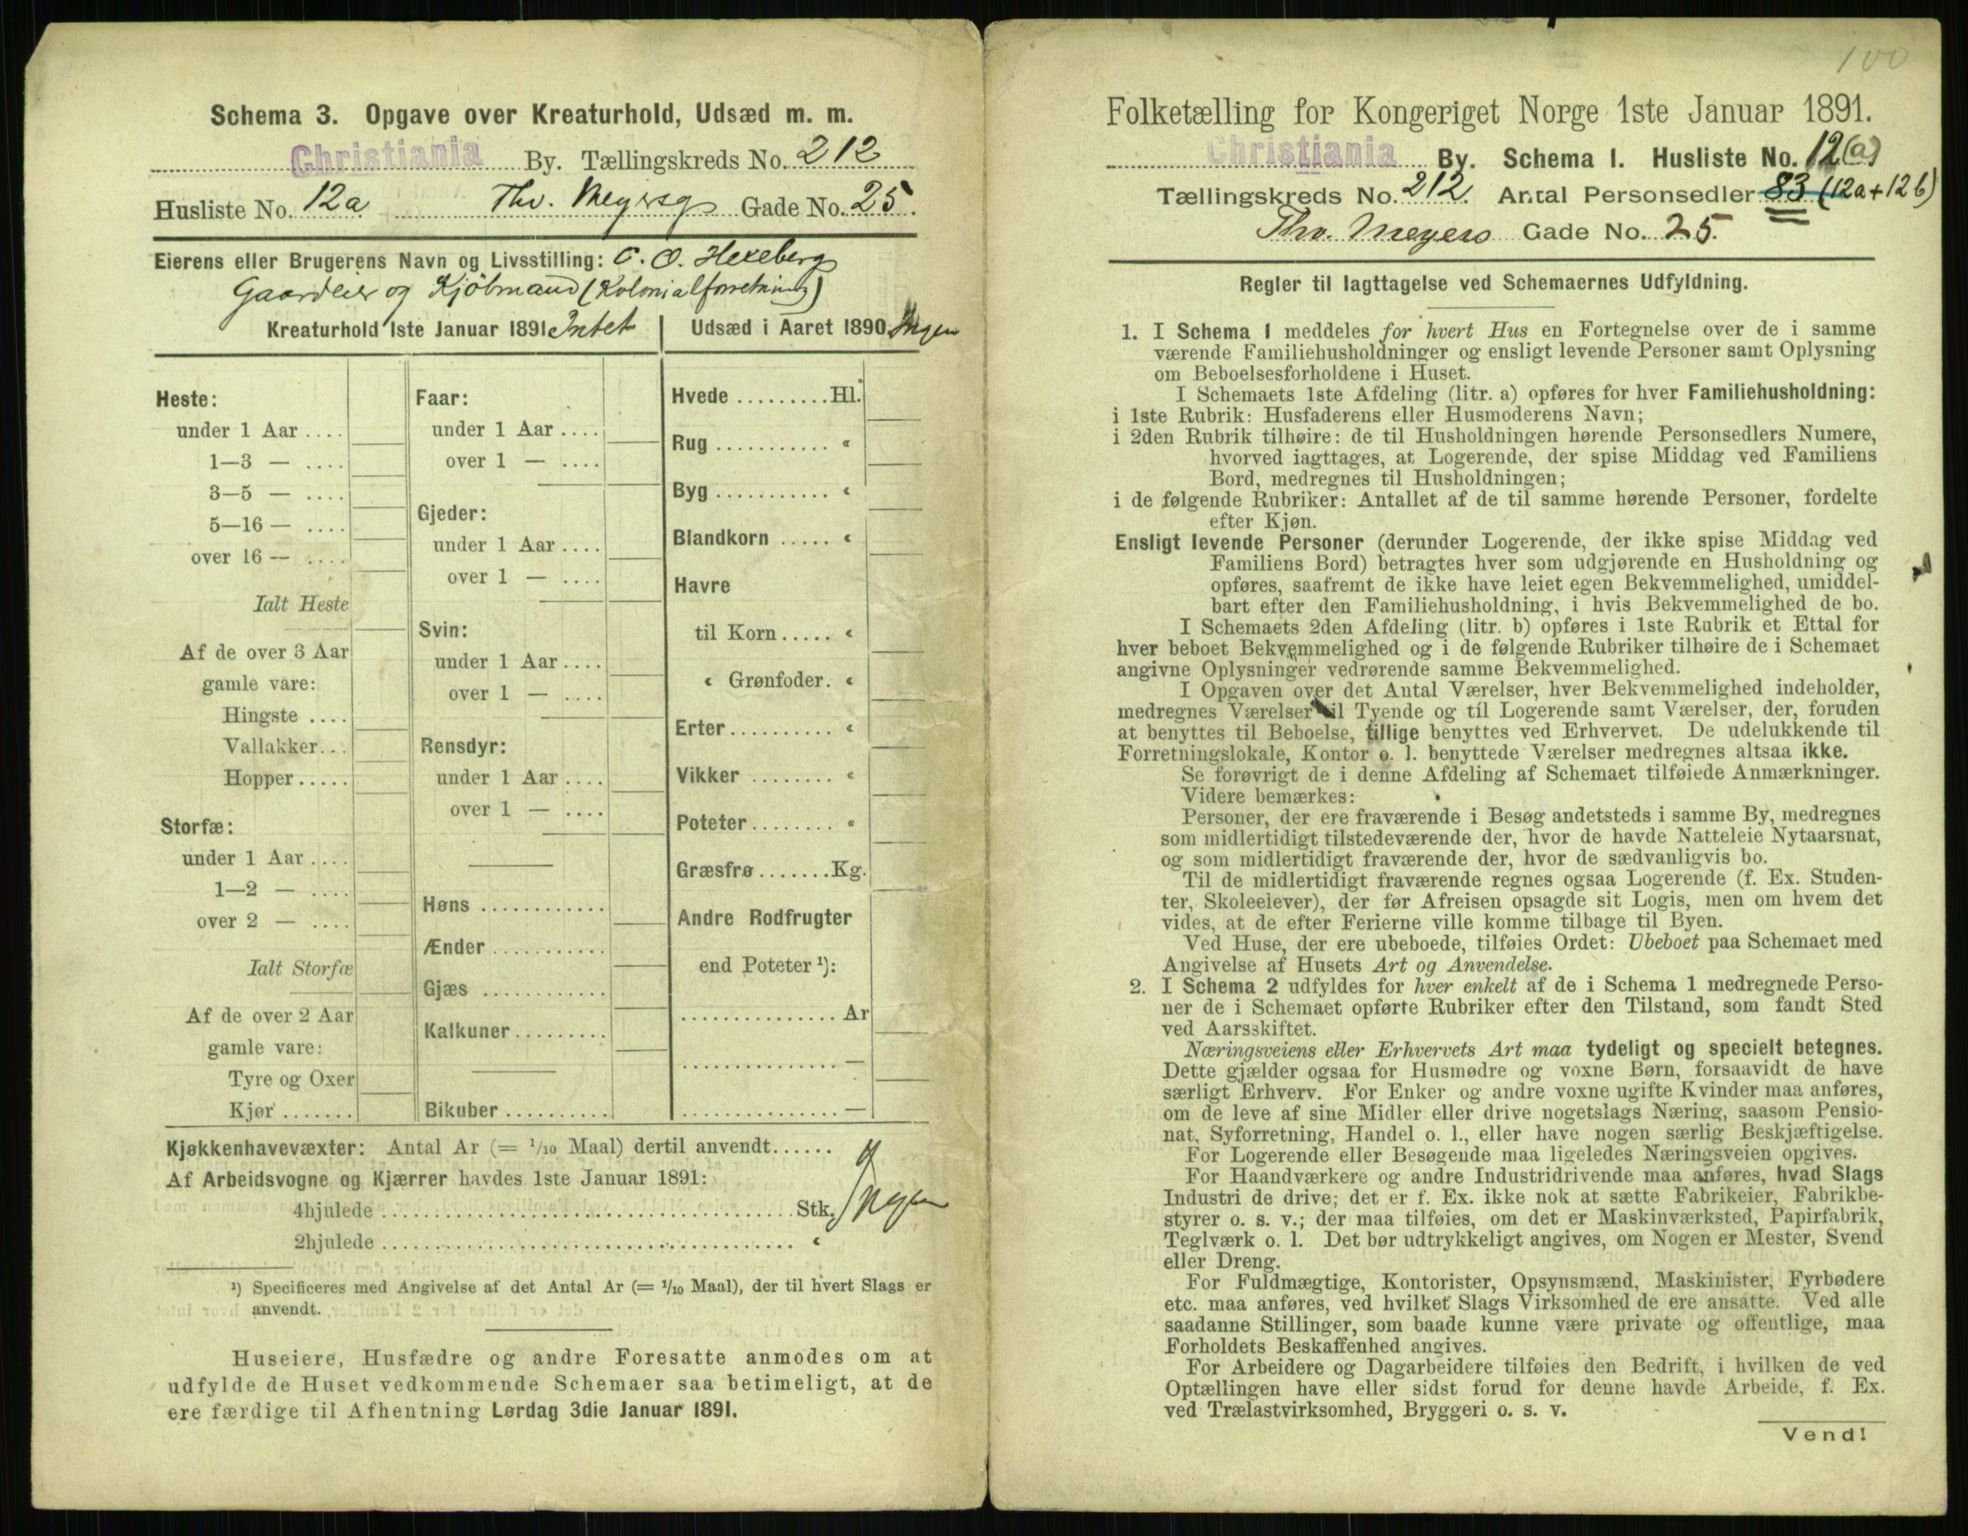 Schema 3. Opgave over Kreaturhold, Udsæd m. m.
Christiania By. Tællingskreds No. 212
Husliste No. 12a Thv. Meyersg Gade No. 25.
Eierens eller Brugerens Navn og Livsstilling: C. O. Hexeberg
Gaardeier og Kjøbmand (Kolonialforretning)
Kreaturhold 1ste Januar 1891 Intet
Heste:
under 1 Aar ....
1—3 — ....
3—5 — ....
5—16 — ....
over 16 — ....
Ialt Heste
Af de over 3 Aar
gamle vare:
Hingste ....
Vallakker...
Hopper .....
Storfæ:
under 1 Aar ....
1—2 — ....
over 2 — ....
Ialt Storfæ
Af de over 2 Aar
gamle vare:
Tyre og Oxer
Kjør .......
Faar:
under 1 Aar ....
over 1 — ....
Gjeder:
under 1 Aar ....
over 1 — ....
Svin:
under 1 Aar ....
over 1 — ....
Rensdyr:
under 1 Aar ....
over 1 — ....
Høns ............
Ænder ...........
Gjæs ............
Kalkuner .........
Bikuber ..........
Udsæd i Aaret 1890. Ingen
Hvede .........Hl.
Rug ........... «
Byg ........... «
Blandkorn ..... «
Havre
til Korn ..... «
« Grønfoder. «
Erter.......... «
Vikker ........ «
Poteter........ «
Græsfrø .......Kg.
Andre Rodfrugter
end Poteter ¹):
............... Ar
............... —
............... —
Kjøkkenhavevæxter: Antal Ar (= 1/10 Maal) dertil anvendt......
Af Arbeidsvogne og Kjærrer havdes 1ste Januar 1891:
4hjulede ........................................ Stk. Ingen
2hjulede ........................................ «
¹) Specificeres med Angivelse af det Antal Ar (= 1/10 Maal), der til hvert Slags er
anvendt.
Huseiere, Husfædre og andre Foresatte anmodes om at
udfylde de Huset vedkommende Schemaer saa betimeligt, at de
ere færdige til Afhentning Lørdag 3die Januar 1891.
100
Folketælling for Kongeriget Norge 1ste Januar 1891.
Christiania By. Schema 1. Husliste No. 12(a)
Tællingskreds No. 212. Antal Personsedler 83 (12a+12b)
Thv. Meyers Gade No. 25.
Regler til Iagttagelse ved Schemaernes Udfyldning.
1. I Schema 1 meddeles for hvert Hus en Fortegnelse over de i samme
værende Familiehusholdninger og ensligt levende Personer samt Oplysning
om Beboelsesforholdene i Huset.
I Schemaets 1ste Afdeling (litr. a) opføres for hver Familiehusholdning:
i 1ste Rubrik: Husfaderens eller Husmoderens Navn;
i 2den Rubrik tilhøire: de til Husholdningen hørende Personsedlers Numere,
hvorved iagttages, at Logerende, der spise Middag ved Familiens
Bord, medregnes til Husholdningen;
i de følgende Rubriker: Antallet af de til samme hørende Personer, fordelte
efter Kjøn.
Ensligt levende Personer (derunder Logerende, der ikke spise Middag ved
Familiens Bord) betragtes hver som udgjørende en Husholdning og
opføres, saafremt de ikke have leiet egen Bekvemmelighed, umiddel-
bart efter den Familiehusholdning, i hvis Bekvemmelighed de bo.
I Schemaets 2den Afdeling (litr. b) opføres i 1ste Rubrik et Ettal for
hver beboet Bekvemmelighed og i de følgende Rubriker tilhøire de i Schemaet
angivne Oplysninger vedrørende samme Bekvemmelighed.
I Opgaven over det Antal Værelser, hver Bekvemmelighed indeholder,
medregnes Værelser til Tyende og til Logerende samt Værelser, der, foruden
at benyttes til Beboelse, tillige benyttes ved Erhvervet. De udelukkende til
Forretningslokale, Kontor o. l. benyttede Værelser medregnes altsaa ikke.
Se forøvrigt de i denne Afdeling af Schemaet tilføiede Anmærkninger.
Videre bemærkes:
Personer, der ere fraværende i Besøg andetsteds i samme By, medregnes
som midlertidigt tilstedeværende der, hvor de havde Natteleie Nytaarsnat,
og som midlertidigt fraværende der, hvor de sædvanligvis bo.
Til de midlertidigt fraværende regnes ogsaa Logerende (f. Ex. Studen-
ter, Skoleelever), der før Afreisen opsagde sit Logis, men om hvem det
vides, at de efter Ferierne ville komme tilbage til Byen.
Ved Huse, der ere ubeboede, tilføies Ordet: Ubeboet paa Schemaet med
Angivelse af Husets Art og Anvendelse.
2. I Schema 2 udfyldes for hver enkelt af de i Schema 1 medregnede Perso-
ner de i Schemaet opførte Rubriker efter den Tilstand, som fandt Sted
ved Aarsskiftet.
Næringsveiens eller Erhvervets Art maa tydeligt og specielt betegnes.
Dette gjælder ogsaa for Husmødre og voxne Børn, forsaavidt de have
særligt Erhverv. For Enker og andre voxne ugifte Kvinder maa anføres,
om de leve af sine Midler eller drive nogetslags Næring, saasom Pensio-
nat, Syforretning, Handel o. l., eller have nogen særlig Beskjæftigelse.
For Logerende eller Besøgende maa ligeledes Næringsveien opgives.
For Haandværkere og andre Industridrivende maa anføres, hvad Slags
Industri de drive; det er f. Ex. ikke nok at sætte Fabrikeier, Fabrikbe-
styrer o. s. v.; der maa tilføies, om det er Maskinværksted, Papirfabrik,
Teglværk o. l. Det bør udtrykkeligt angives, om Nogen er Mester, Svend
eller Dreng.
For Fuldmægtige, Kontorister, Opsynsmænd, Maskinister, Fyrbødere
etc. maa anføres, ved hvilket Slags Virksomhed de ere ansatte. Ved alle
saadanne Stillinger, som baade kunne være private og offentlige, maa
Forholdets Beskaffenhed angives.
For Arbeidere og Dagarbeidere tilføies den Bedrift, i hvilken de ved
Optællingen have eller sidst forud for denne havde Arbeide, f. Ex.
ved Trælastvirksomhed, Bryggeri o. s. v.
Vend!